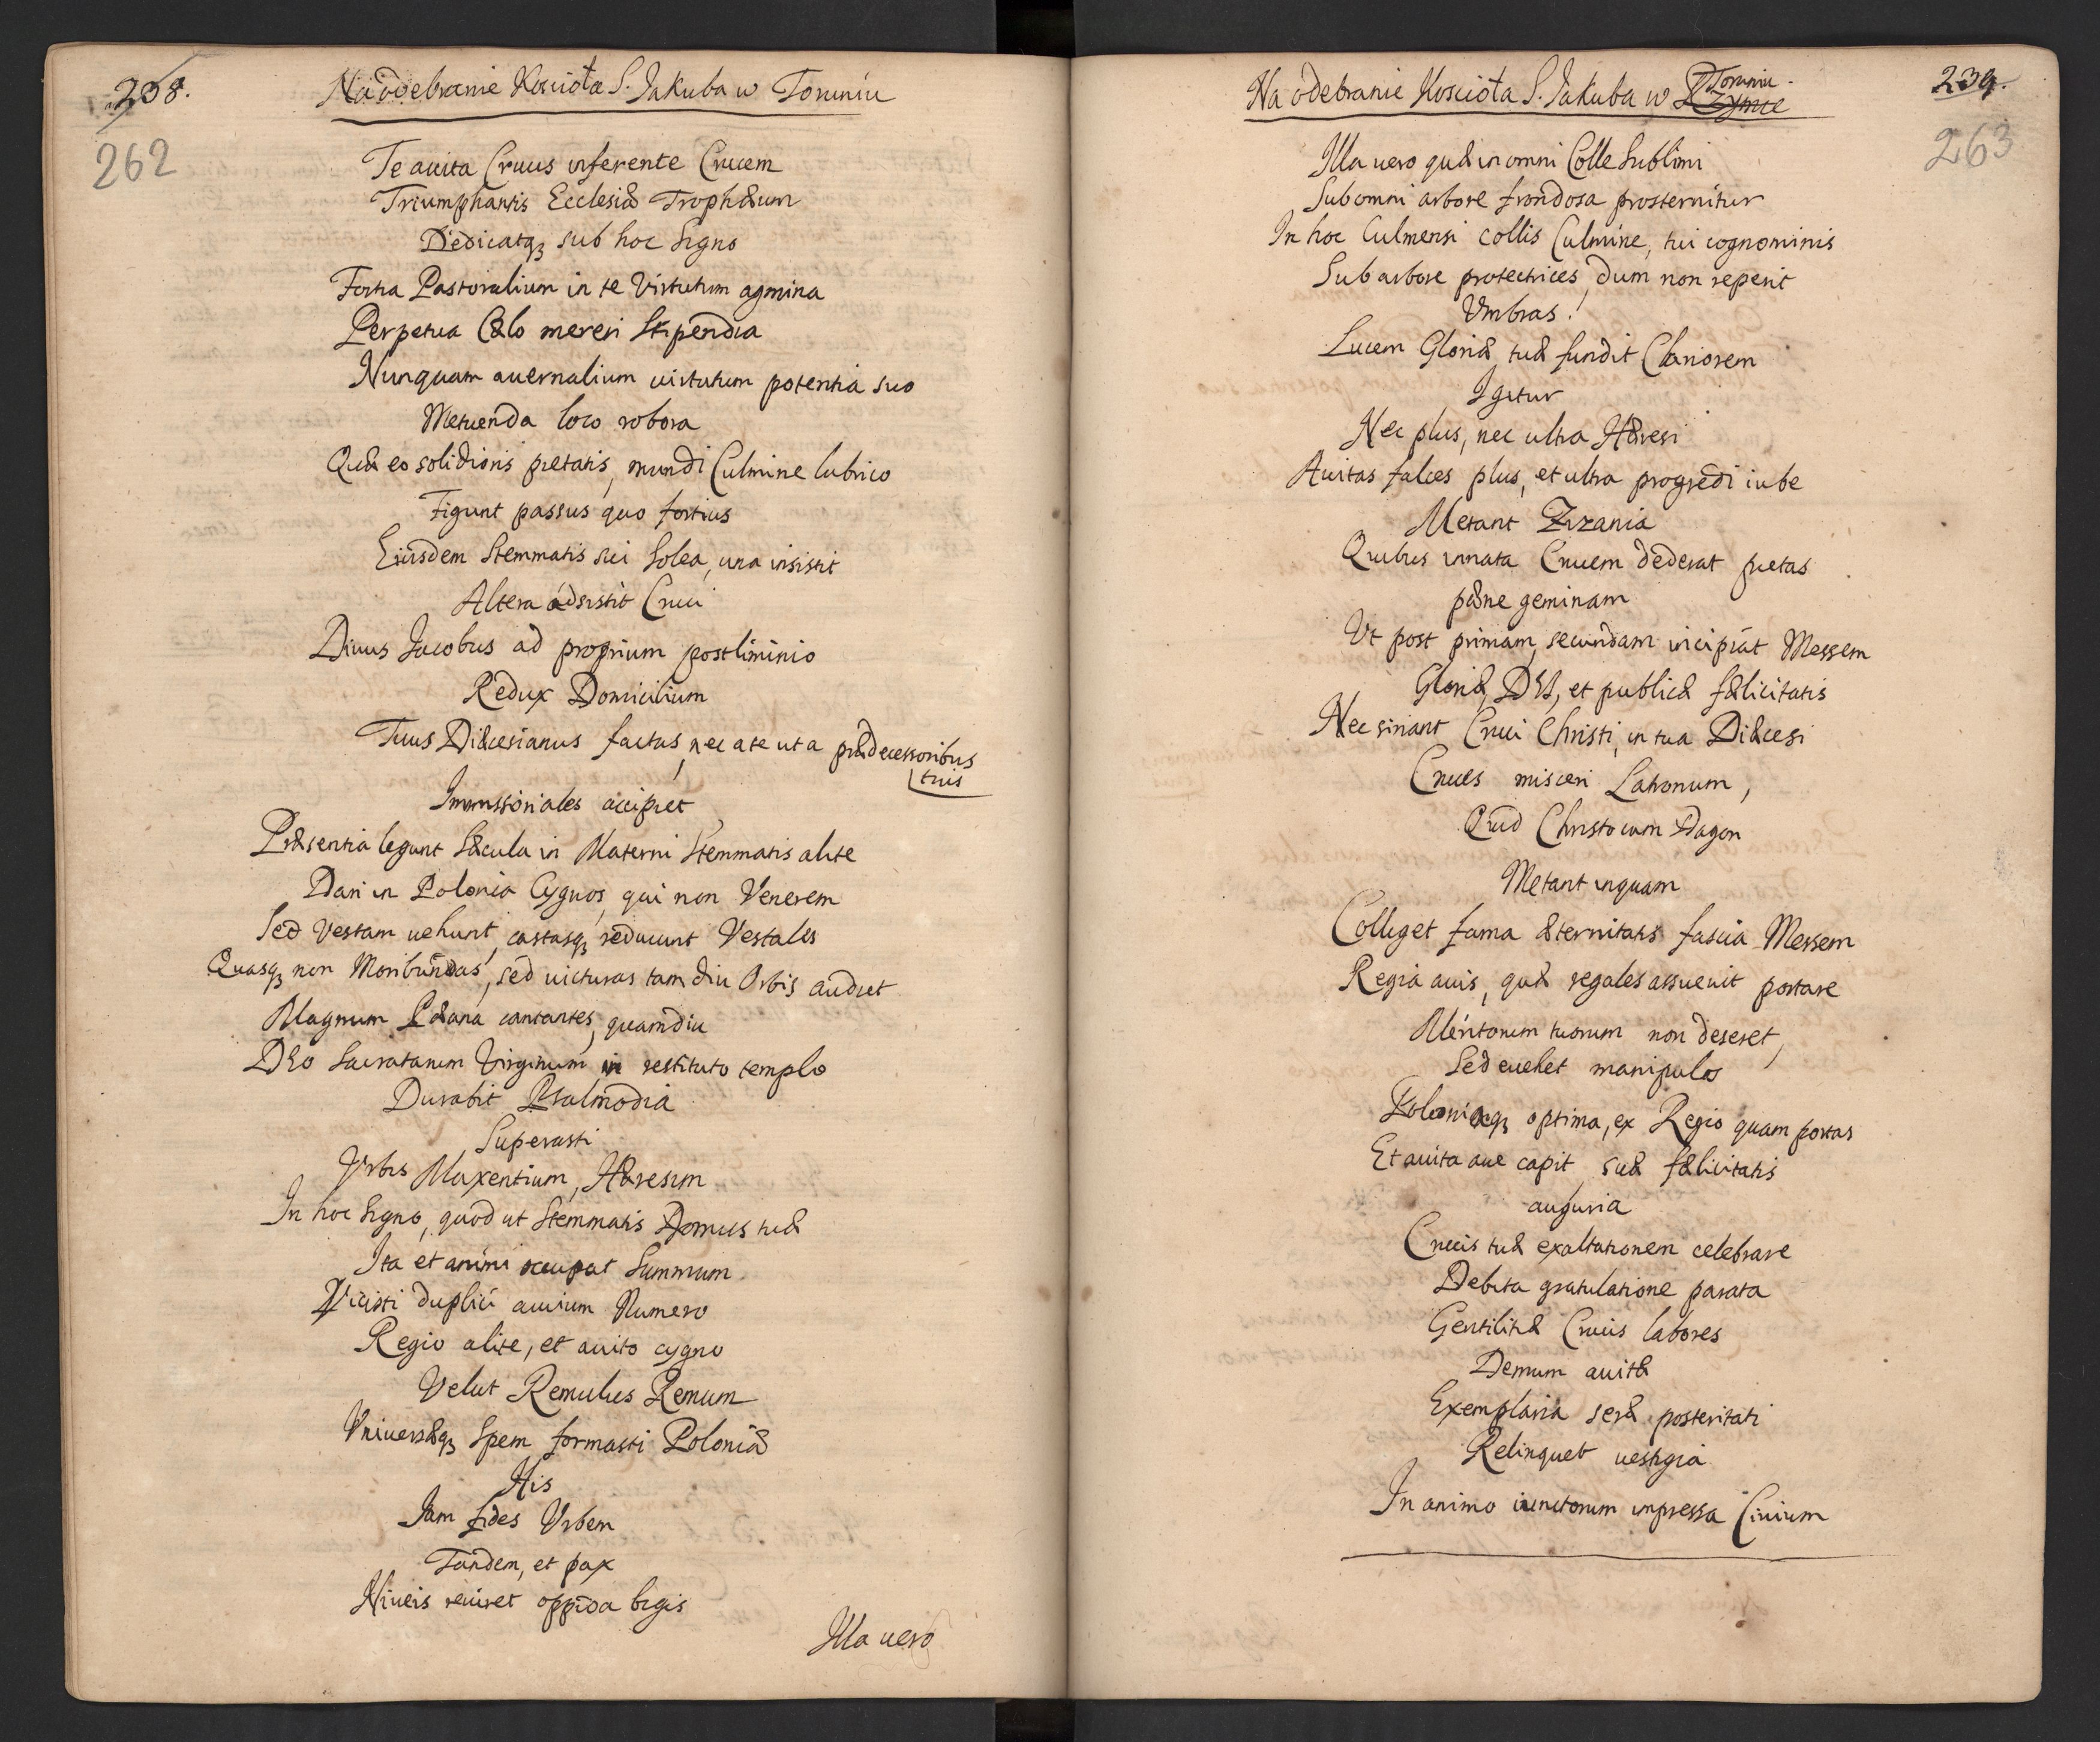 238.
262
Na odebranie Koscioła S. Jakuba w Toruniu
Te auita Crucis inferente Crucem
Triumphantis Ecclesiæ Trophæum
Dedicatq; sub hoc Signo
Fortia Pastoralium in te Virtutum agmina
Perpetua Cælo mereri Stipendia
Nunquam auernalium uirtutum potentia suo
Metuenda loco robora
Quæ eo solidioris pietatis, mundi Culmine lubrico
Figunt passus quo fortius
Eiusdem Stemmatis sui Solea, una insistit
Altera adsistit Cruci
Diuus Jacobus ad proprium postliminio
Redux Domicilium
Tuus Diæcesianus factus, nec a te ut a prædecessoribus
tuis
Immissoriales accipiet
Præsentia legunt Sæcula in Materni Stemmatis alite
Dari in Polonia Cygnos, qui non Venerem
Sed Vestam uehunt, castasq; reducunt Vestales
Quasq; non Moribundas, sed uicturas tam diu Orbis audiet
Magnum Pæana cantantes, quamdiu
DEo Sacratarum Virginum in restituto templo
Durabit Psalmodia
Superasti
Vrbis Maxentium, Hæresim
In hoc Signo, quod ut Stemmatis Domus tuæ
Ita et animi occupat Summum
Vicisti duplici auium Numero
Regio alite, et auito cygno
Velut Remulus Remum
Vniuersæq; Spem formasti Poloniæ
His
Jam fides Vrbem
Tandem, et pax
Niueis reuiset oppida bigis
Illa uero
239.
263
Na odebranie Koscioła S. Jakuba w Rzymie Toruniu
Illa uero quæ in omni Colle Sublimi
Sub omni arbore frondosa prosternitur
In hoc Culmensi collis Culmine, tui cognominis
Sub arbore protectrices, dum non reperit
Vmbras!
Lucem Gloriæ tuæ fundit Clariorem
Igitur
Nec plus, nec ultra Hæresi
Auitas falces plus, et ultra progredi iube
Metant Zizania
Quibus innata Crucem dederat pietas
pæne geminam
Vt post primam, secundam incipiat Messem
Gloriæ, DEI, et publicæ fælicitatis
Nec sinant Cruci Christi, in tua Diæcesi
Cruces misceri Latronum,
Quid Christo cum Dagon
Metant inquam
Colliget fama æternitatis fascia Messem
Regia auis, quæ regales assueuit portare
Meritorum tuorum non deseret,
Sed euehet manipulos
Poloniæq; optima, ex Regio quam portas
Et auita aue capit, suæ fælicitatis
auguria
Crucis tuæ exaltationem celebrare
Debita gratulatione parata
Gentilitiæ Crucis labores
Demum auitæ
Exemplaria seræ posteritati
Relinquet uestigia
In animo iunctorum impressa Ciuium